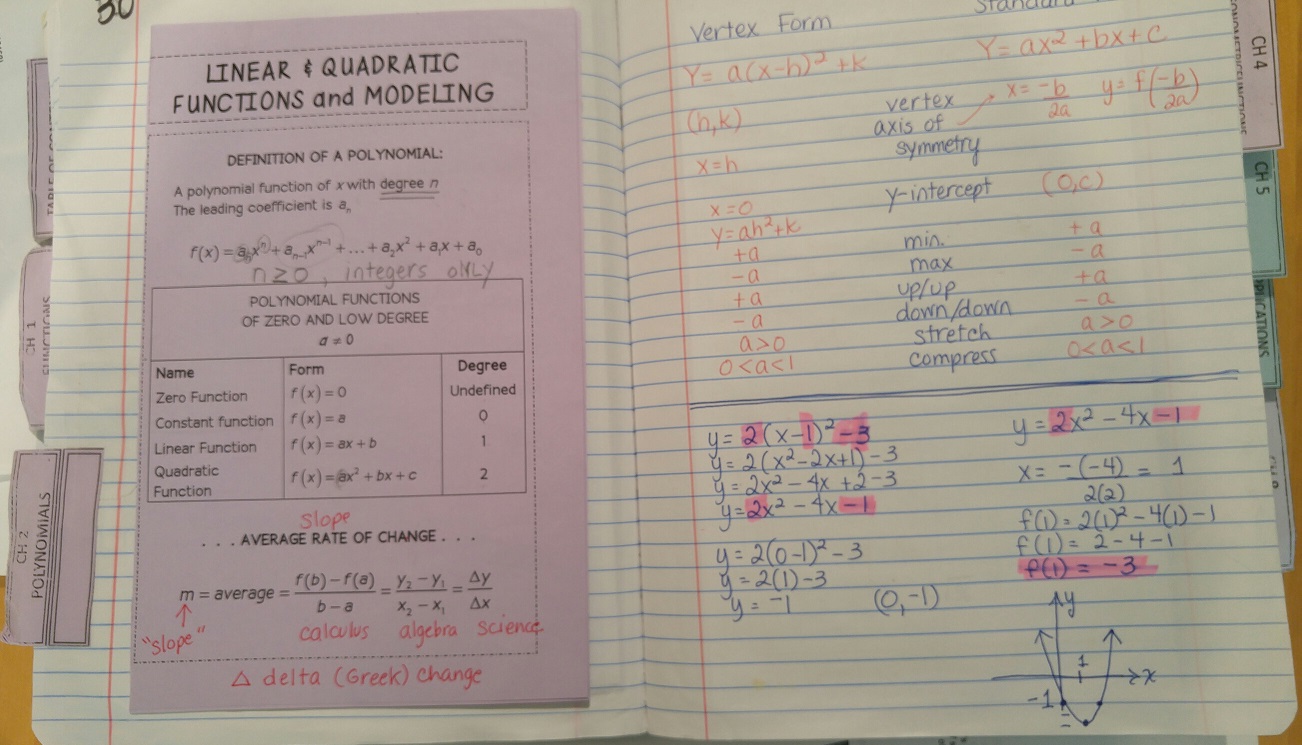 30
LINEAR & QUADRATIC
FUNCTIONS and MODELING
DEFINITION OF A POLYNOMIAL:
A polynomial function of x with degree n
The leading coefficient is aₙ
f(x) = aₙxⁿ + aₙ₋₁xⁿ⁻¹ + ... + a₂x² + a₁x + a₀
n ≥ 0, integers ONLY
POLYNOMIAL FUNCTIONS
OF ZERO AND LOW DEGREE
a ≠ 0
Name Form Degree
Zero Function f(x) = 0 Undefined
Constant function f(x) = a 0
Linear Function f(x) = ax + b 1
Quadratic Function f(x) = ax² + bx + c 2
slope
. . . AVERAGE RATE OF CHANGE . . .
m = average = f(b) – f(a) / b – a = y₂ – y₁ / x₂ – x₁ = Δy / Δx
"slope" calculus algebra science
Δ delta (Greek) change
Vertex Form Standard
Y = a(x-h)² + k Y = ax² + bx + c
(h,k) vertex x = -b/2a y = f(-b/2a)
x = h axis of symmetry
x = 0 y-intercept (0,c)
y = ah² + k
+a min. +a
-a max -a
+a up/up +a
-a down/down -a
a > 0 stretch a > 0
0 < a < 1 compress 0 < a < 1
y = 2(x-1)² - 3
y = 2(x² - 2x + 1) - 3
y = 2x² - 4x + 2 - 3
y = 2x² - 4x - 1
y = 2(0-1)² - 3
y = 2(1) - 3
y = -1 (0,-1)
y = 2x² - 4x - 1
x = -(-4) / 2(2) = 1
f(1) = 2(1)² - 4(1) - 1
f(1) = 2 - 4 - 1
f(1) = -3
y
1
x
-1
CH 1
FUNCTIONS
CH 2
POLYNOMIALS
CH 4
CH 5